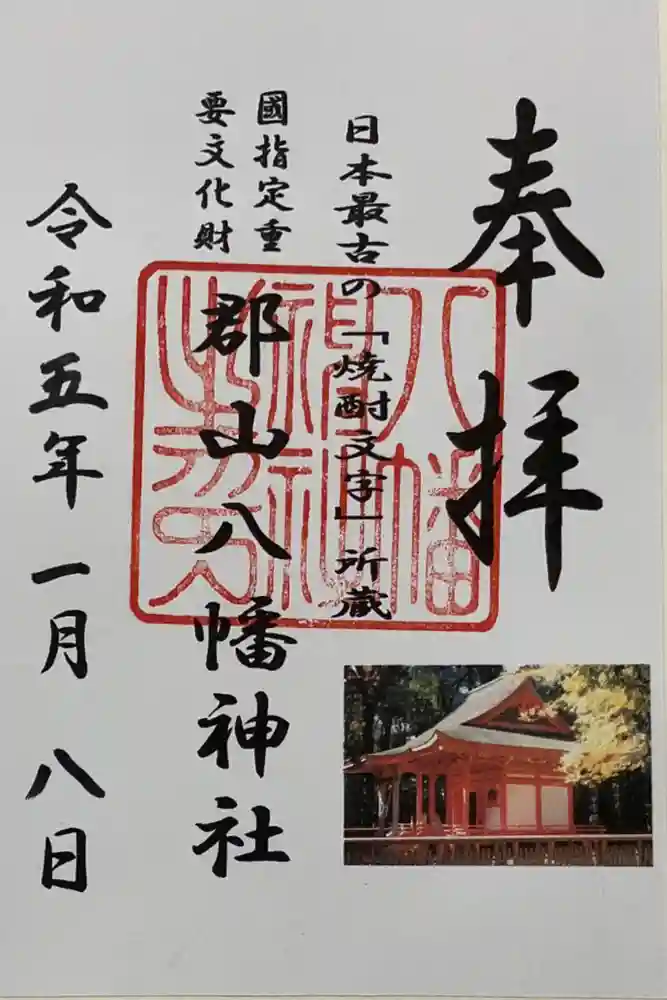 奉拝
日本最古の「焼酎文字」所蔵
國指定重
要文化財
郡山八幡神社
八幡
神社
之印
令和五年一月八日